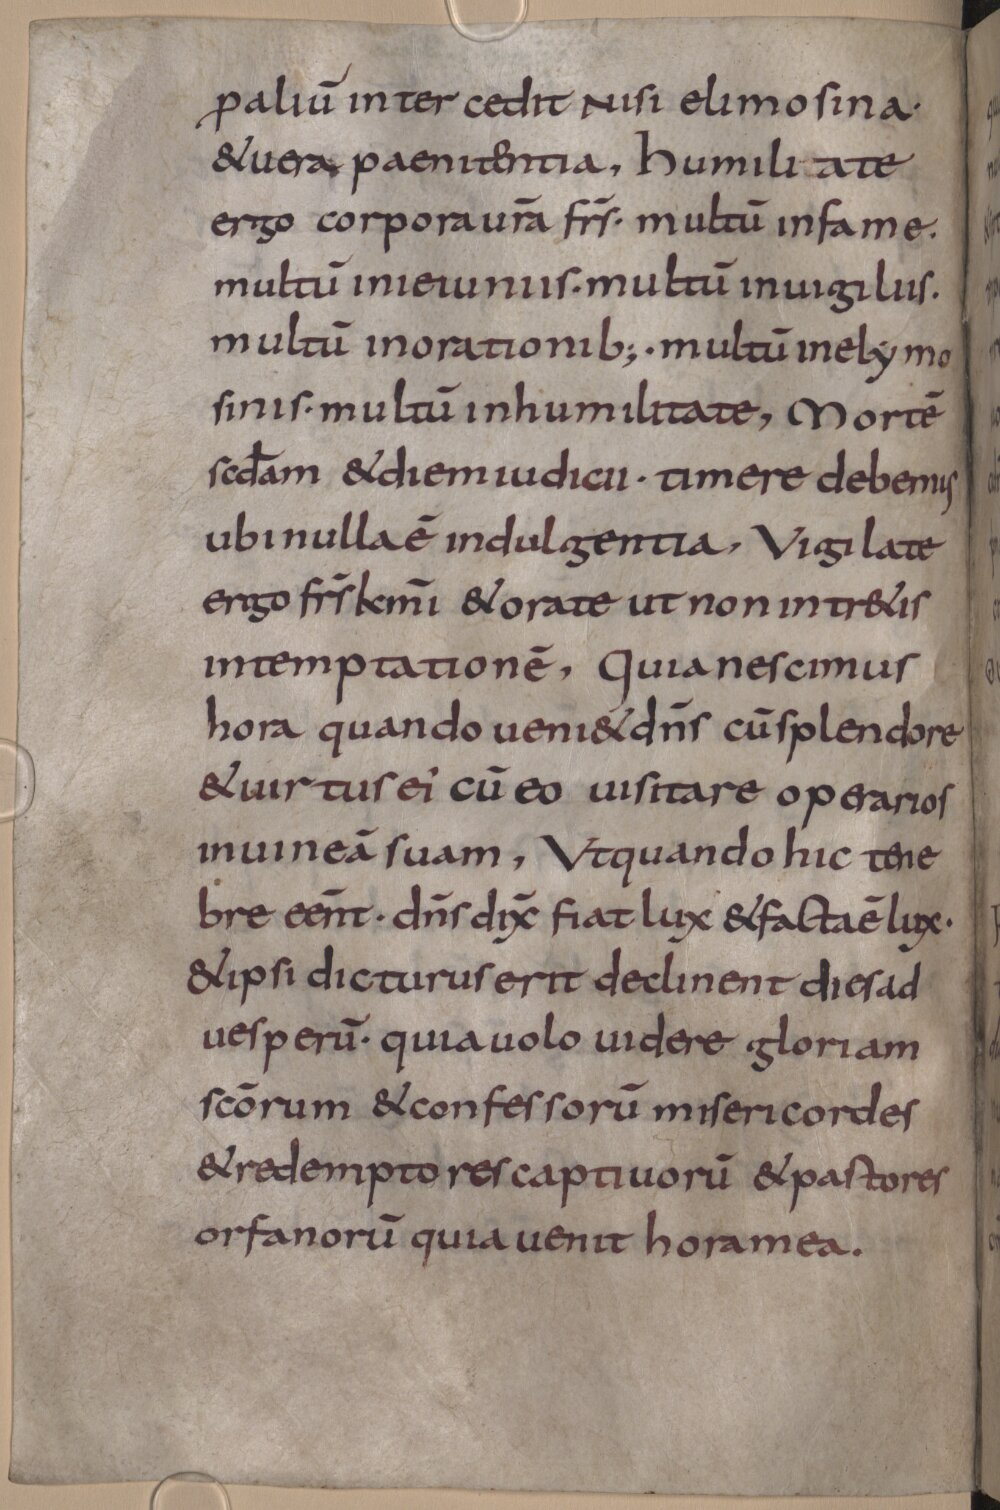 paliū inter cedit nisi elimosina·
&uera paenitentia, humilitate
ergo corpora ur̄a fr̄s· multū infame.
multū inieiuniis·multū inuigiliis.
multū inorationib;·multū inelẏmo
sinis·multū inhumilitate, Mortē
scdam &diemiudicii· timere debemus
ubinullaē indulgentia, Vigilate
ergo fr̄s km̄i &orate ut non intr&is
intemptationē, Quianescimus
hora quando ueni&dn̄s cūsplendore
&uirtus ei' cū eo uisitare operarios
inuineā suam, Vtquando hic tene
bre een̄t· dn̄s dix̄ fiat lux &factaē lux·
&ipsi dicturus erit declinent diesad
uesperū· quiauolo uidere gloriam
scōrum &confessorū misericordes
&redemptores captiuorū &pastores
orfanorū quiauenit horamea.